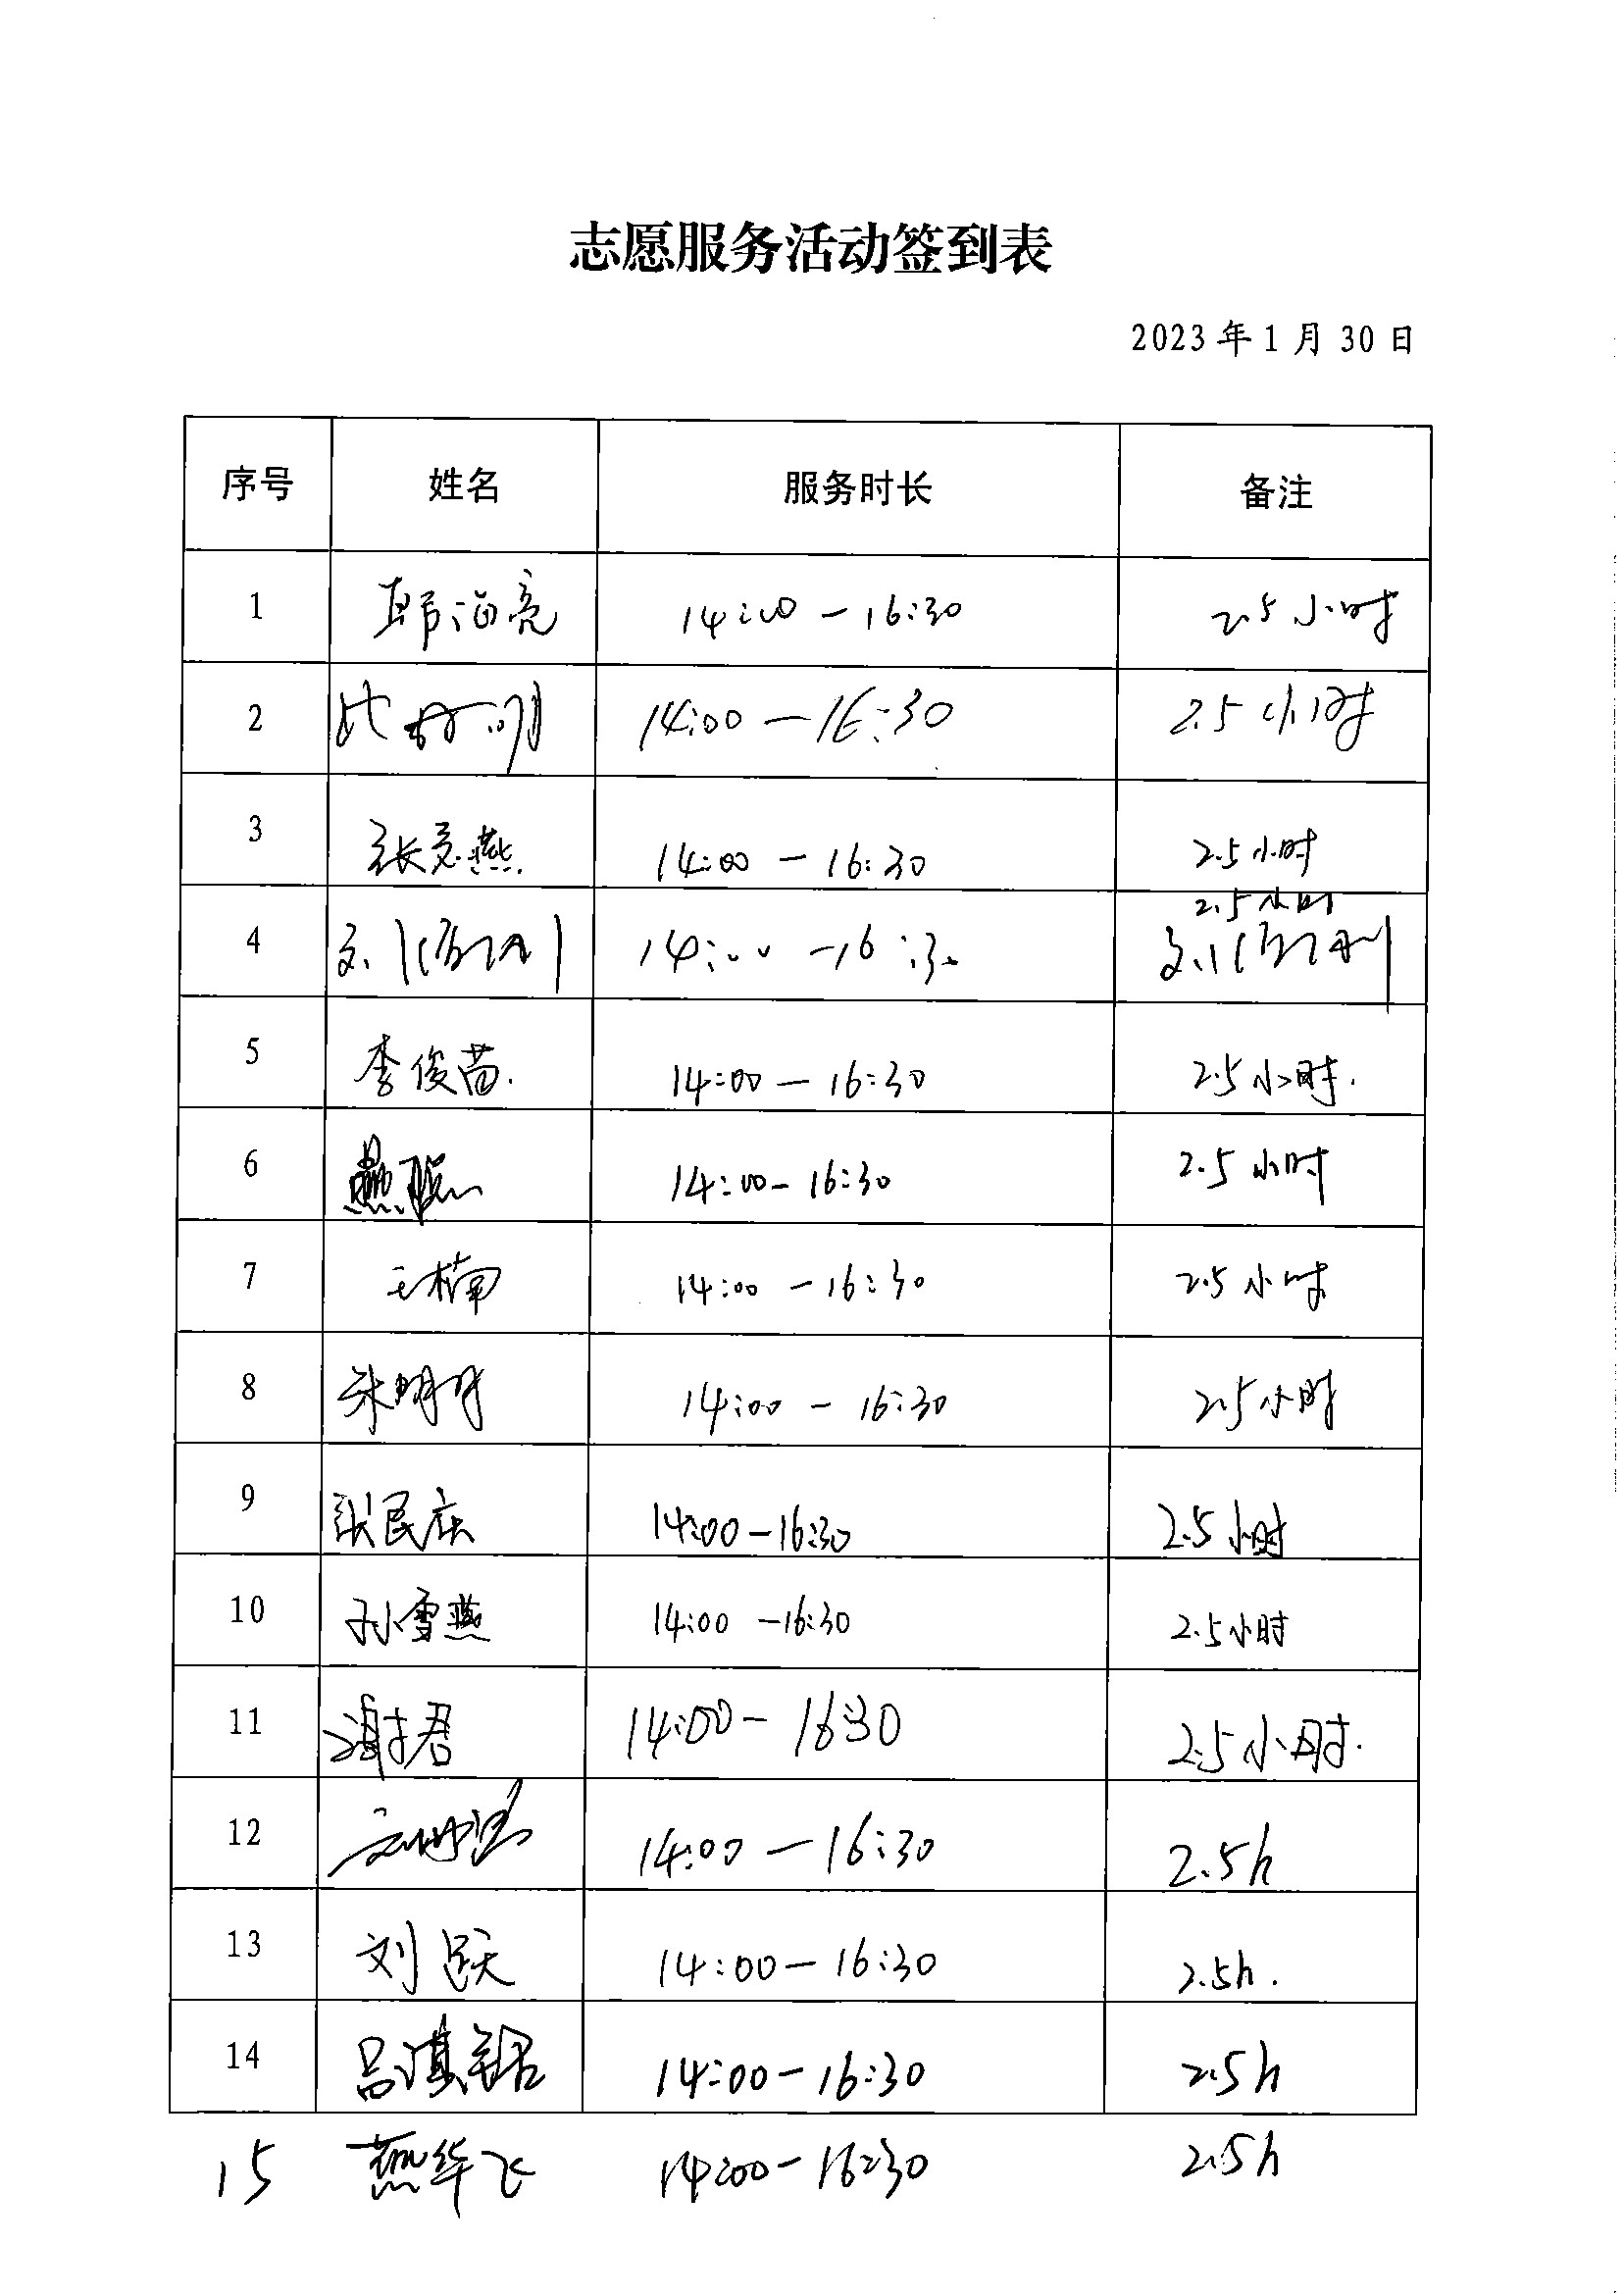 志愿服务活动签到表
2023年1月30日
序号 姓名 服务时长 备注
1 韩海亮 14:00-16:30 2.5小时
2 14:00-16:30 2.5小时
3 张彦燕 14:00-16:30 2.5小时
2.5小时
4 14:00-16:30
5 李俊苗 14:00-16:30 2.5小时
6 14:00-16:30 2.5小时
7 王楠 14:00-16:30 2.5小时
8 朱明月 14:00-16:30 2.5小时
9 张民庆 14:00-16:30 2.5小时
10 孙雪燕 14:00-16:30 2.5小时
11 谢君 14:00-16:30 2.5小时
12 14:00-16:30 2.5h
13 刘跃 14:00-16:30 2.5h
14 吕淇锯 14:00-16:30 2.5h
15 燕华飞 14:00-16:30 2.5h